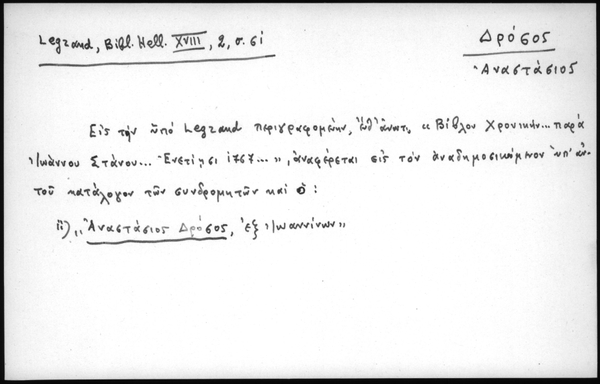 Legrand, Bibl. Hell. XVIII, 2, σ. 61
Δρόσος
Ἀναστάσιος
Εἰς τὴν ὑπό Legrand περιγραφομένην, ὡς ἄνωτ., « Βίβλον Χρονικήν... παρά
Ἰωάννου Στάνου... Ἐνετίησι 1767... », ἀναφέρεται εἰς τὸν ἀναδημοσιευόμενον ὑπ' αὐ-
τοῦ κατάλογον τῶν συνδρομητῶν καί ὁ :
„ Ἀναστάσιος Δρόσος, ἐξ Ἰωαννίνων »